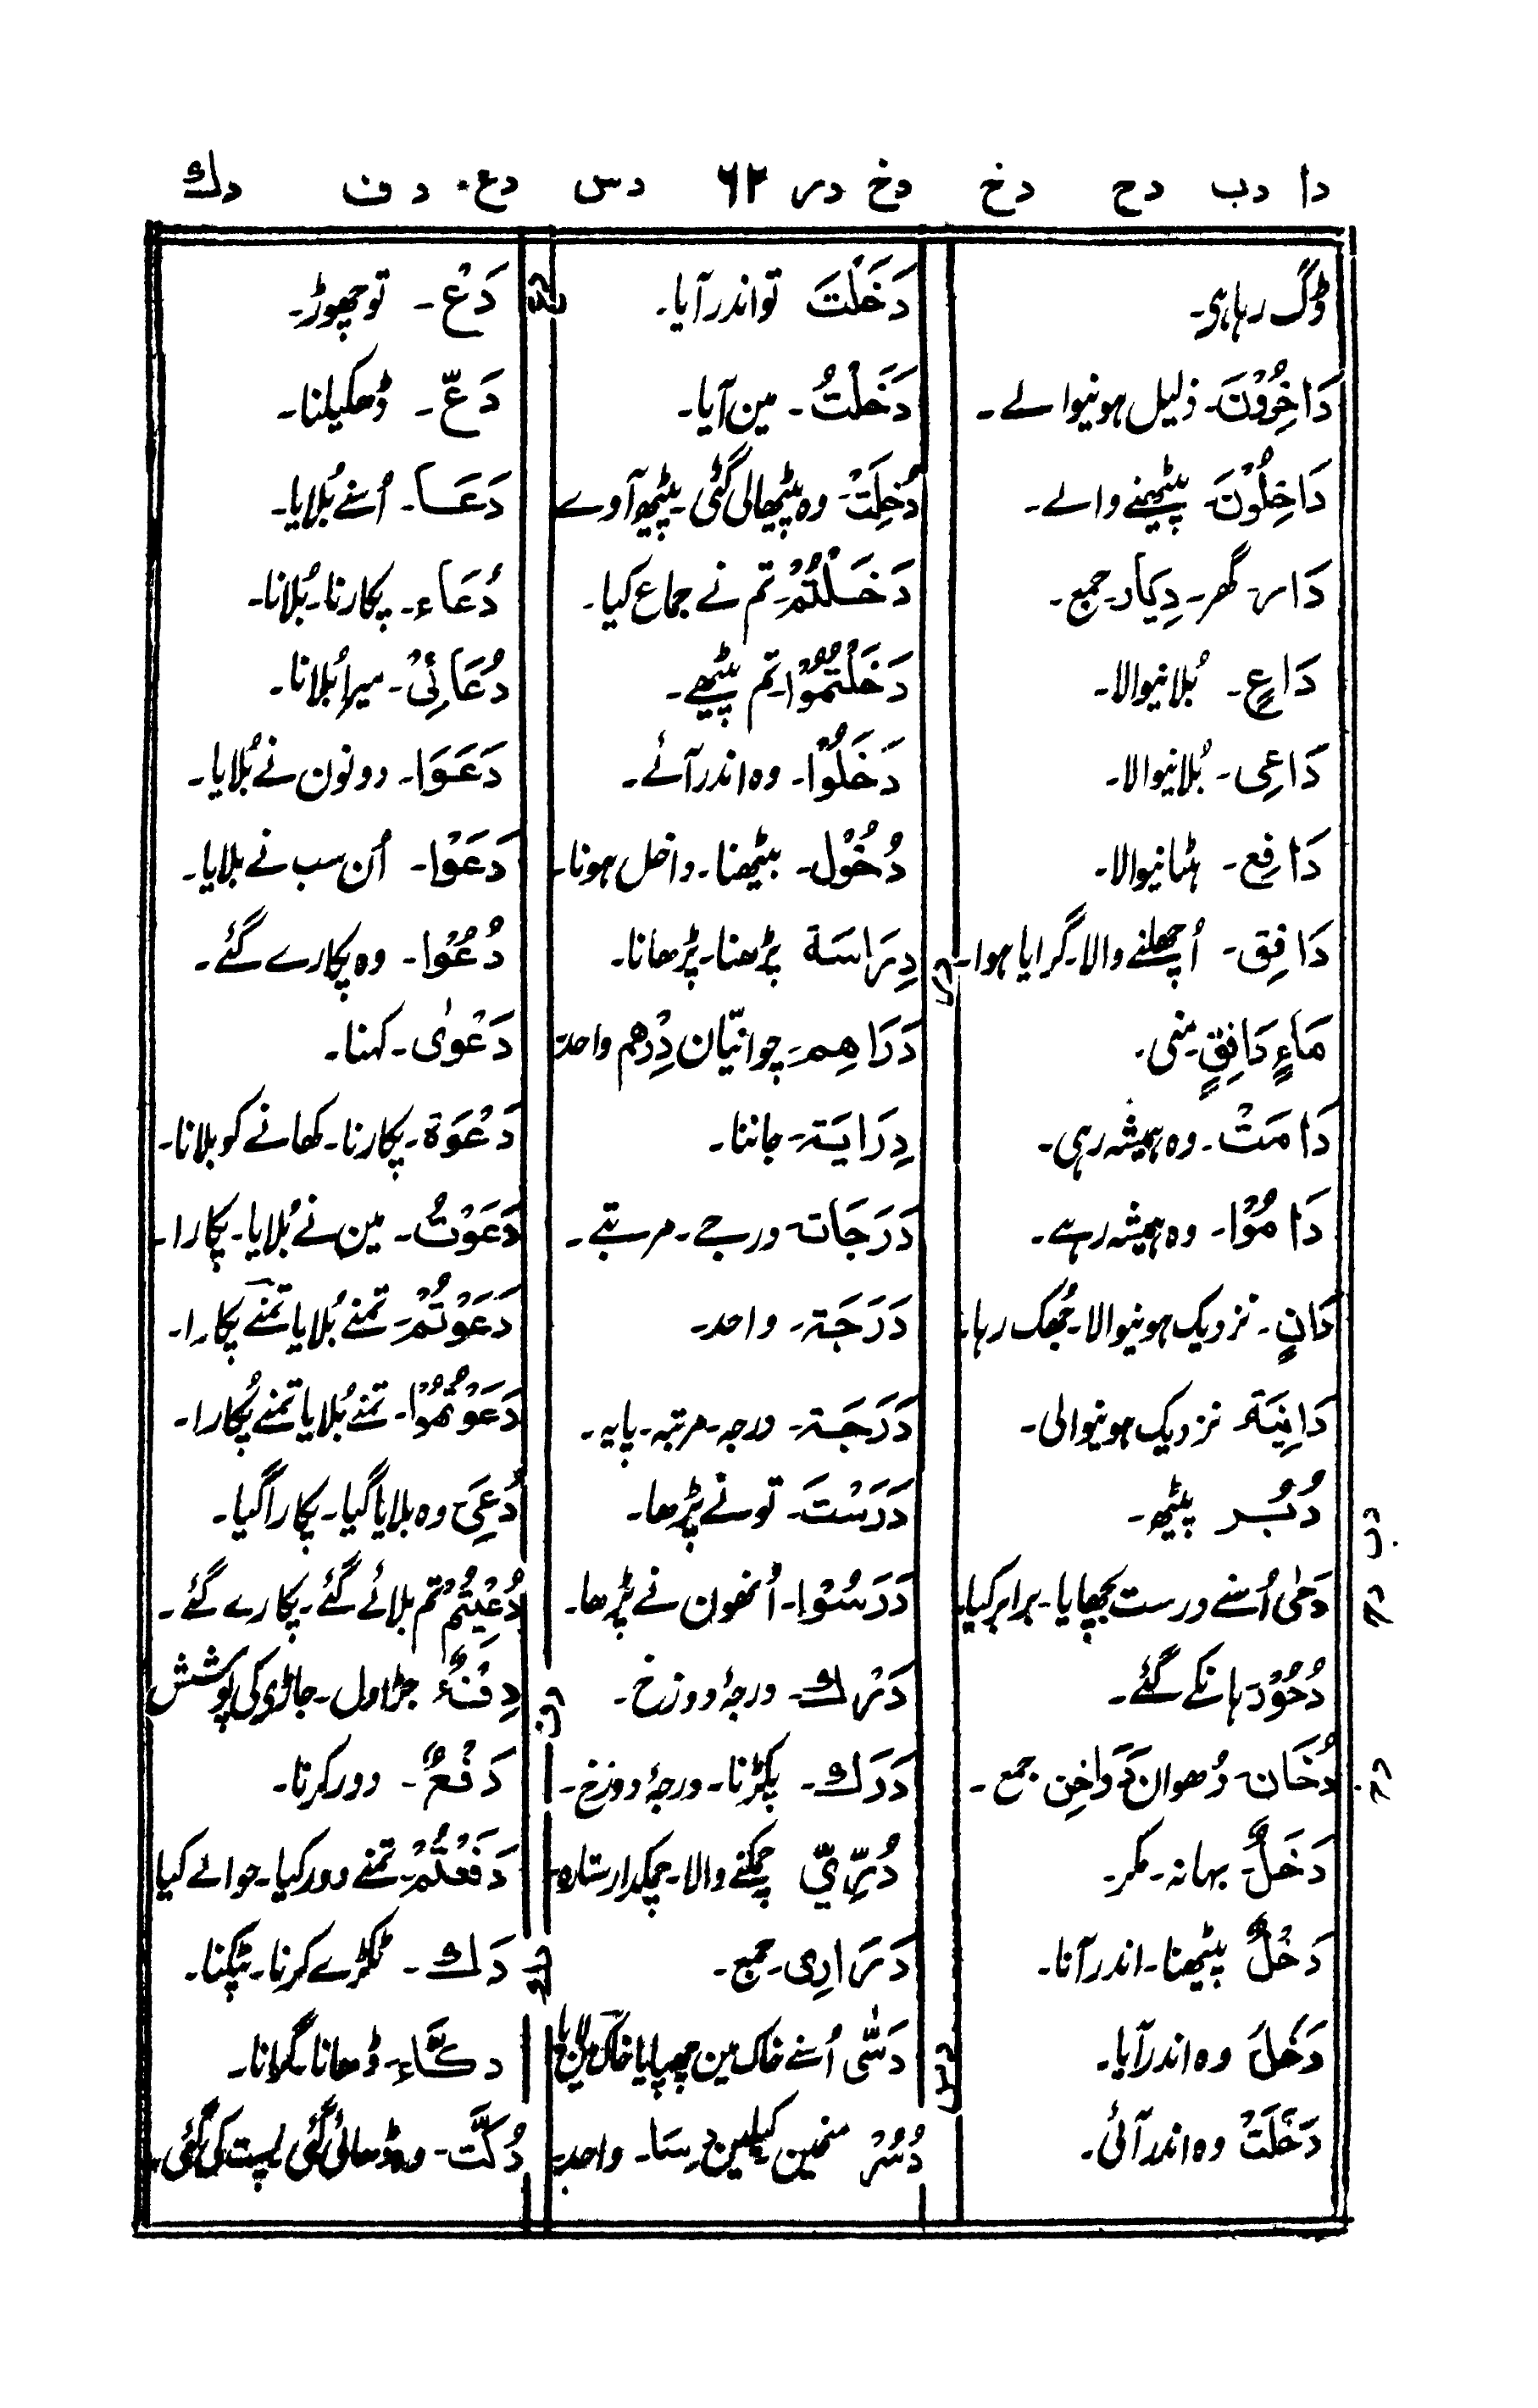 دا دب دح دخ دخ در ٦٢ دس دع دف دك
ڈگ رہا ہی۔
دَاخِرُوْنَ۔ ذلیل ہونیوالے۔
دَاخِلُوْنَ۔ پیٹھنے والے۔
دَار۔ گھر۔ دِیَار۔ جمع۔
دَاعٍ۔ بُلانیوالا۔
دَاعِی۔ بُلانیوالا۔
دَافِع۔ ہٹانیوالا۔
دَافِق۔ اُچھلنے والا۔ گرایا ہوا۔
مَاءٍ دَافِقٍ۔ منی۔
دَامَتْ۔ وہ ہمیشہ رہی۔
دَامُوْا۔ وہ ہمیشہ رہے۔
دَانٍ۔ نزدیک ہونیوالا۔ جُھک رہا۔
دَانِیَة۔ نزدیک ہونیوالی۔
دُبُر پیٹھ۔
دَحٰی اُسنے درست بچھایا۔ برابر کیا۔
دُحُوْر۔ ہانکے گئے۔
دُخَان۔ دُھوان دَوَاخِن جمع۔
دَخَلٌ۔ بہانہ۔ مکر۔
دَخْلٌ پیٹھنا۔ اندر آنا۔
دَخَلَ وہ اندر آیا۔
دَخَلَتْ وہ اندر آئی۔
دب
دح
دخ
دَخَلْتَ تو اندر آیا۔
دَخَلْتُ۔ مین آیا۔
دُخِلَتْ۔ وہ پیٹھالی گئی۔ پیٹھ آوے
دَخَلْتُمْ۔ تم نے جماع کیا۔
دَخَلْتُمُوْا۔ تم پیٹھے۔
دَخَلُوْا۔ وہ اندر آئے۔
دُخُوْل۔ پیٹھنا۔ داخل ہونا۔
دِرَاسَة پڑھنا۔ پڑھانا۔
دَرَاهِم۔ چوانیّان دِرْهم واحد۔
دِرَایَة۔ جاننا۔
دَرَجَات درجے۔ مرتبے۔
دَرَجَة۔ واحد۔
دَرَجَة۔ درجہ۔ مرتبہ۔ پایہ۔
دَرَسْتَ۔ تو نے پڑھا۔
دَرَسُوْا۔ اُنھون نے پڑھا۔
دَرْك۔ درجۂ دوزخ۔
دَرَك۔ پکڑنا۔ درجۂ دوزخ۔
دُرِّيّ چمکنے والا۔ چمکدار ستارہ۔
دَرَارِی۔ جمع۔
دَسّٰی اُسنے خاک مین چھپایا خاک مین ملایا
دُسُرْ میخین کیلین دِسَا۔ واحد۔
در
دس
دَعْ۔ تو چھوڑ۔
دَعّ۔ ڈھکیلنا۔
دَعَا۔ اُسنے بُلایا۔
دُعَاء۔ پکارنا۔ بُلانا۔
دُعَائِیْ۔ میرا بُلانا۔
دَعَوَا۔ دونون نے بُلایا۔
دَعَوْا۔ اُن سب نے بلایا۔
دُعُوْا۔ وہ پکارے گئے۔
دَعْوٰی۔ کہنا۔
دَعْوَة۔ پکارنا۔ کھانے کو بلانا۔
دَعَوْتُ۔ مین نے بُلایا۔ پکارا۔
دَعَوْتُمْ۔ تمنے بُلایا تمنے پکارا۔
دَعَوْتُمُوْا۔ تمنے بُلایا تمنے پُکارا۔
دُعِیَ وہ بلایا گیا۔ پکارا گیا۔
دُعِیْتُمْ تم بلائے گئے۔ پکارے گئے۔
دِفْءٌ جڑاول۔ جاڑی کی پوشش
دَفْعٌ۔ دور کرنا۔
دَفَعْتُمْ۔ تمنے دور کیا۔ حوالے کیا
دَك۔ ٹکڑے کرنا۔ پٹکنا۔
دكَّاء۔ ڈھانا۔ گرانا۔
دُكَّت۔ وہ ڈھائی گئی پست کی گئی۔
دع
دف
دك